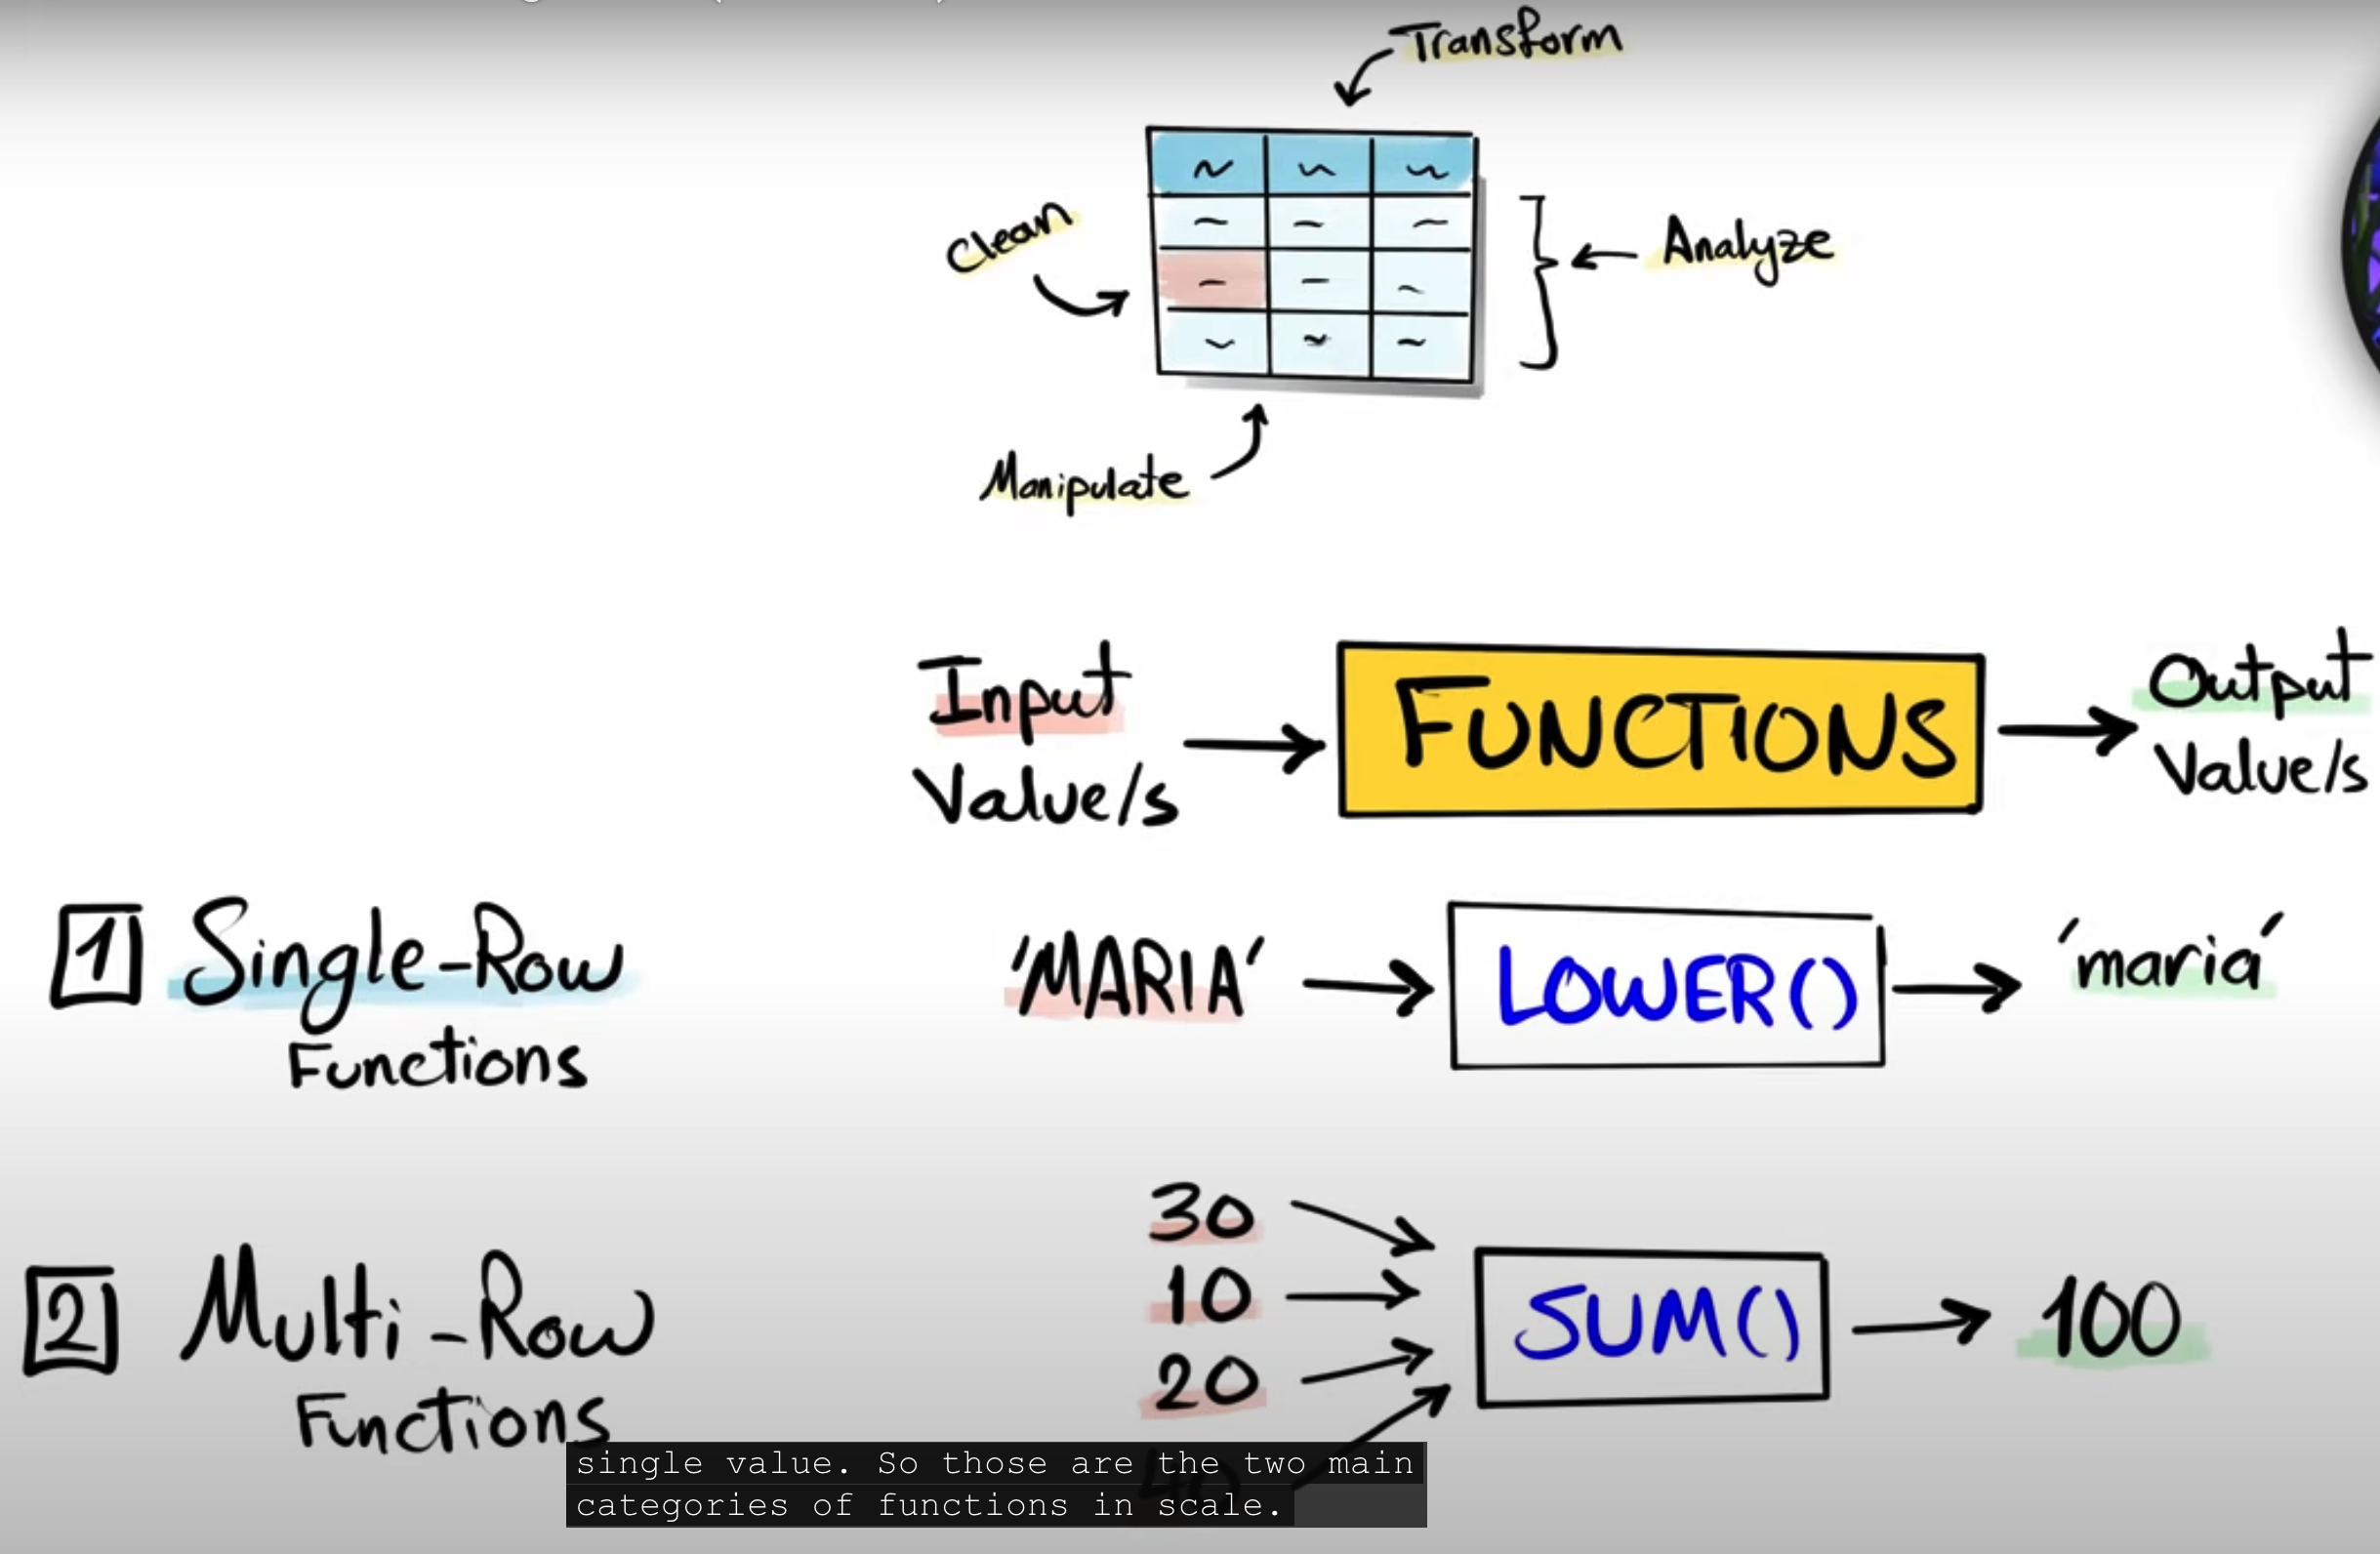 Transform
Clean
Analyze
Manipulate
Input
Value/s
FUNCTIONS
Output
Value/s
1 Single-Row
Functions
'MARIA'
LOWER()
'maria'
2 Multi-Row
Functions
30
10
20
40
SUM()
100
single value. So those are the two main
categories of functions in scale.